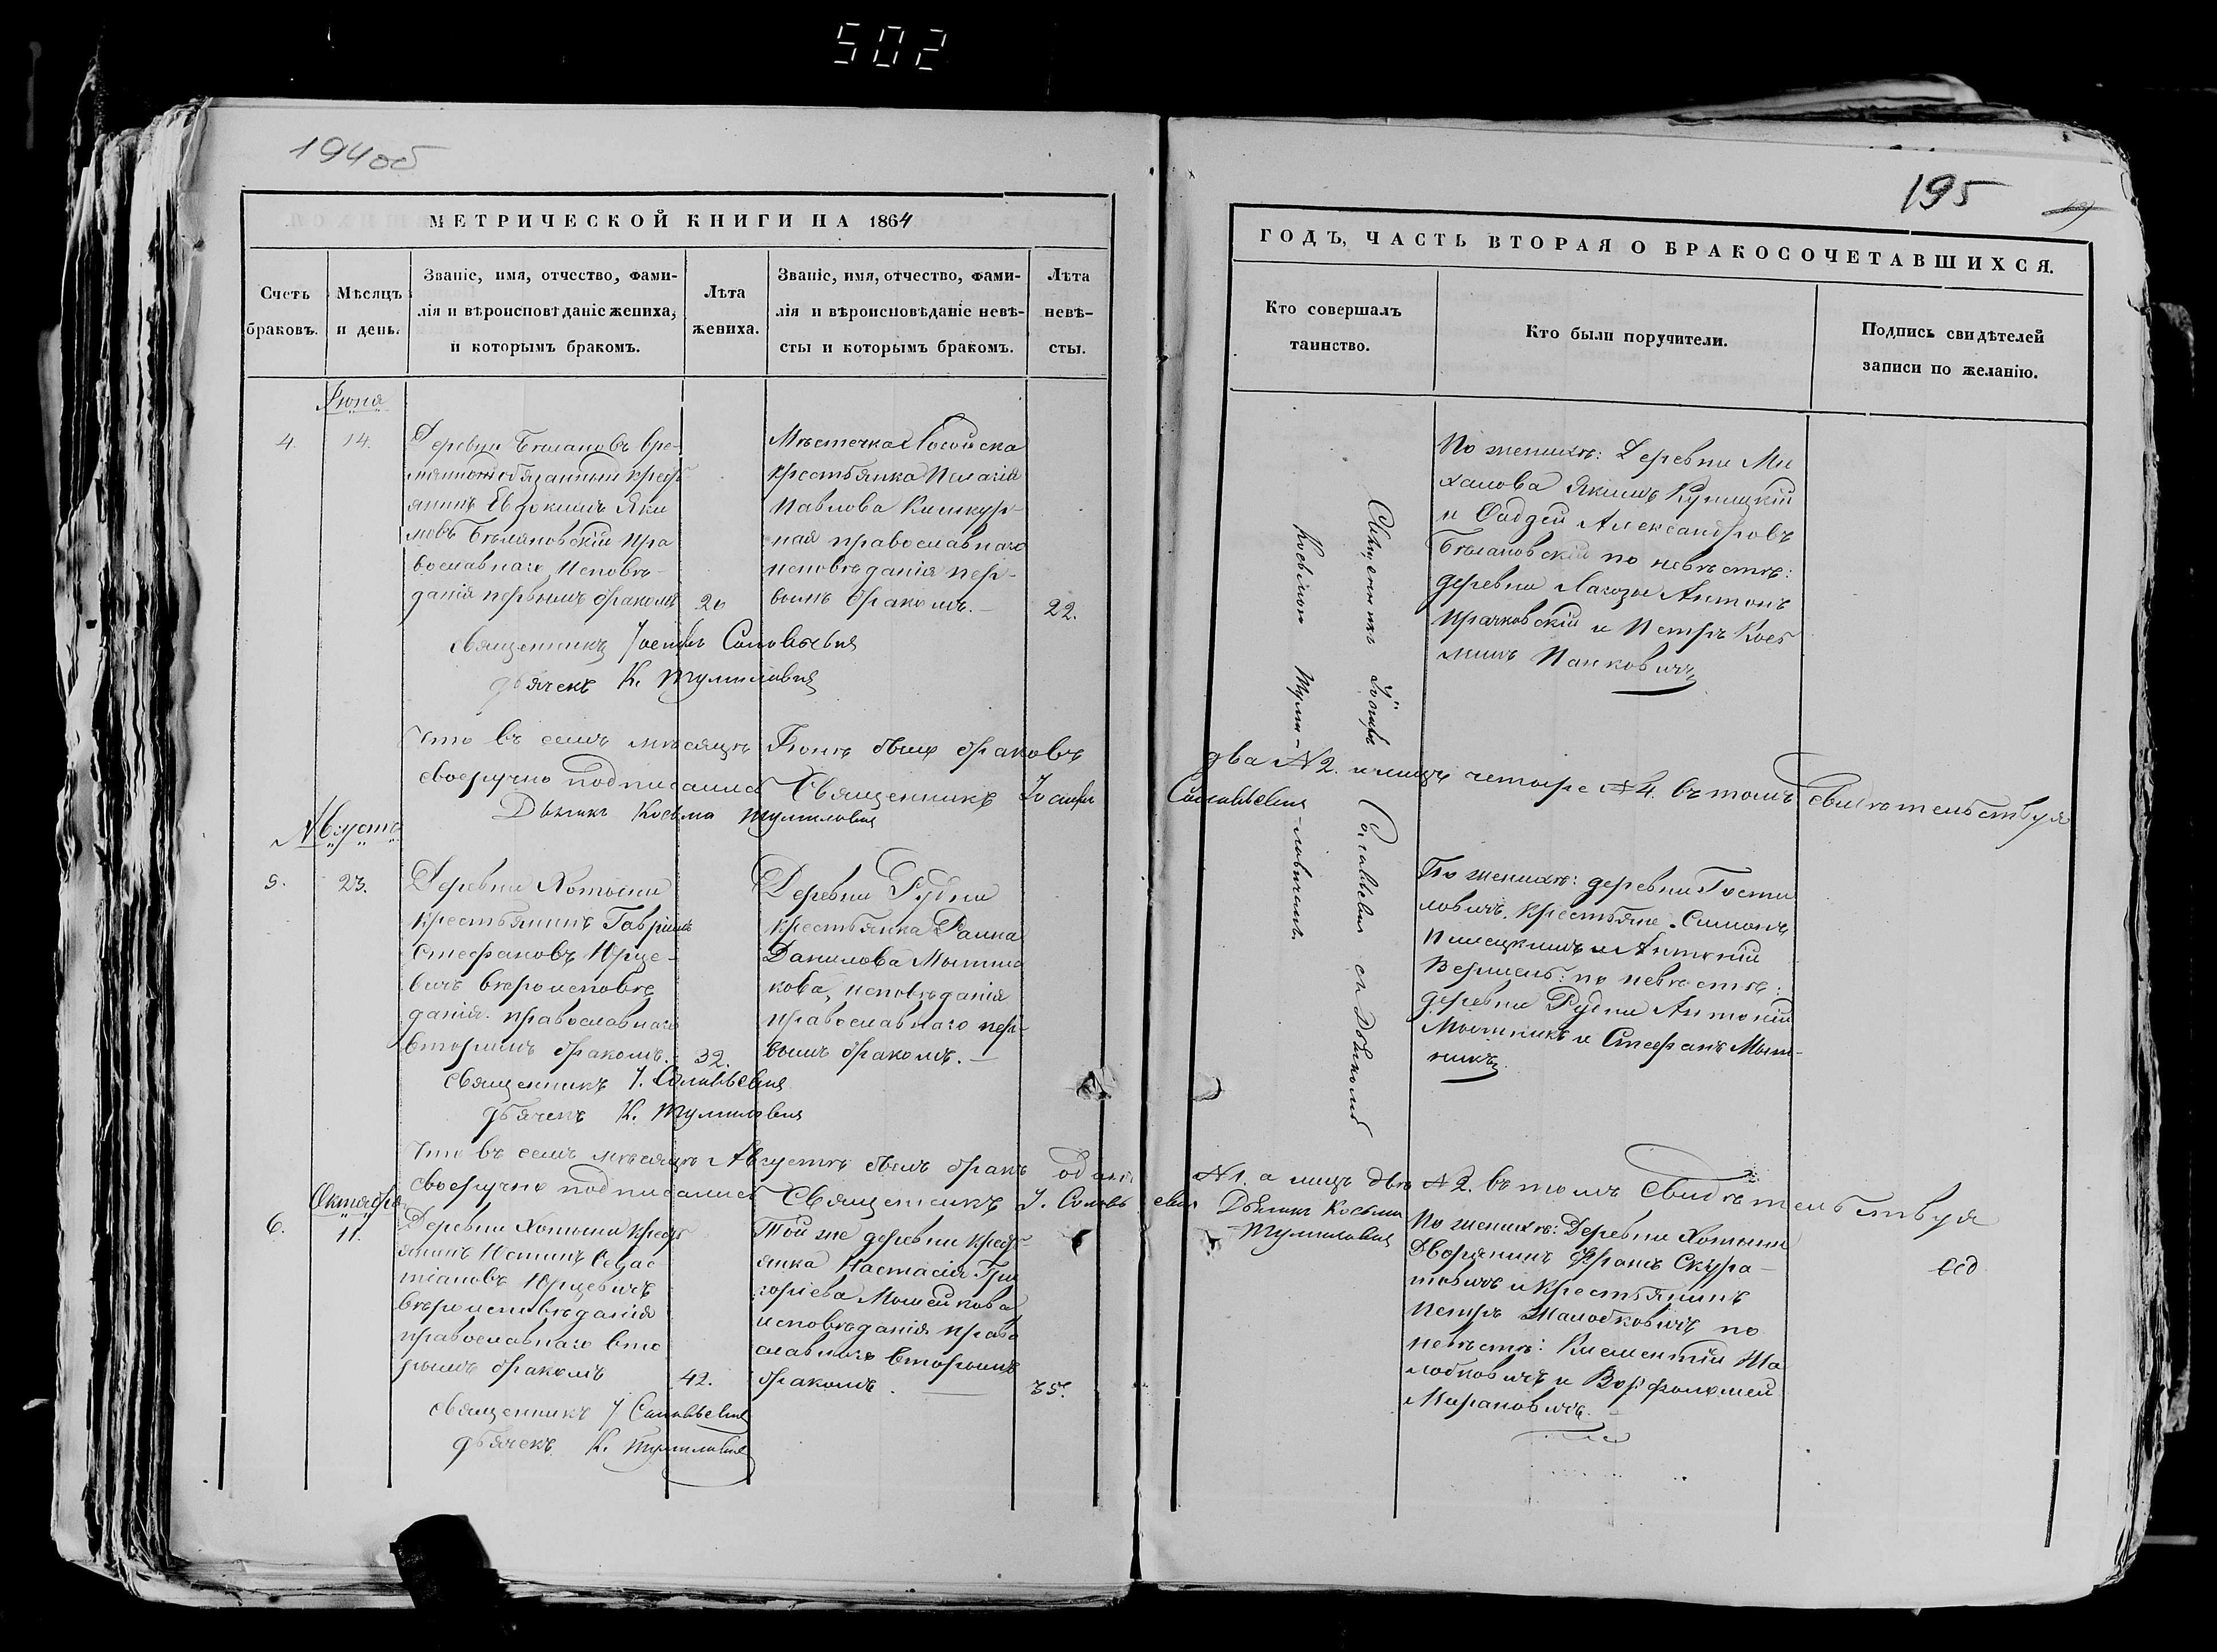 502
194 об
МЕТРИЧЕСКОЙ КНИГИ НА 1864
Счетъ
браковъ.
Мѣсяцъ
и день.
Званіе, имя, отчество, фами-
лія и вѣроисповѣданіе жениха,
и которымъ бракомъ.
Лѣта
жениха.
Званіе, имя, отчество, фами-
лія и вѣроисповѣданіе невѣ-
сты и которымъ бракомъ.
Лѣта
невѣ-
сты.
Іюня
4.
14.
Деревни Бѣлановъ вре-
крест
янинъ Евдокимъ Яки
мовъ Бѣлановскій пра
вославнаго исповѣ-
данія первымъ бракомъ
20
Мѣстечка Логойска
крестьянка Пелагія
Павлова
ная православнаго
исповѣданія пер-
вымъ бракомъ.
22.
священникъ Іосифъ Соловьевич
дьячекъ К. Тумилович
Что въ семъ мѣсяцѣ Іюнѣ было браковъ
своеручно подписались Священникъ Іосифъ
Дьячекъ Косьма Тумилович
Августа
5.
23.
Деревни Хотыни
крестьянинъ Гавріилъ
Стефановъ Юрце-
вичъ вѣроисповѣ
данія православнаго
вторымъ бракомъ.
32.
Деревни Рудни
крестьянка
Данилова
кова, исповѣданія
православнаго пер-
вымъ бракомъ.
священникъ І. Соловьевич
дьячекъ К. Тумилович
Что въ семъ мѣсяцѣ Августѣ былъ бракъ одинъ
своеручно подписались Священникъ І. Соловь
Октября
6.
11.
Деревни Хотыни крест
янинъ Юстинъ Севас
тіановъ Юрцевичъ
вѣроисповѣданія
православнаго вто
рымъ бракомъ
42.
Той же деревни крест-
янка Настасія Гри
горіева Мошейкова
исповѣданія право
славнаго вторымъ
бракомъ.
35.
священникъ І Соловьевич
дьячекъ К. Тумилович
195
ГОДЪ, ЧАСТЬ ВТОРАЯ О БРАКОСОЧЕТАВШИХСЯ.
Кто совершалъ
таинство.
Кто были поручители.
Подпись свидѣтелей
записи по желанію.
Священникъ Іосифъ Соловьевич съ Дьячкомъ
Косьмою Туми-ловичемъ.
По женихѣ: Деревни Ми
халова Якимъ Куницкій
и Фадзей Александровъ
Бѣлановскій по невѣстѣ:
деревни Лагозы Антонъ
Прачковскій и Петръ Кос
минъ Панковичъ
два №2. и лицъ четыре №4. въ томъ свидѣтельствуя
Соловьевич
По женихѣ: деревни Гости
ловичъ. крестьяне. Симонъ
и Антоній
по невѣстѣ:
деревни Рудни Антоній
Мытникъ и Стефанъ Мыт-
никъ
№1. а лицъ двѣ №2. въ томъ свидѣтельствуя
евич Дьячекъ Косьма
Тумилович
По женихѣ: Деревни Хотыни
Дворянинъ Францъ Скура-
товичъ и Крестьянинъ
Петръ Шалобковичъ по
невѣстѣ: Климентій Ша
лобковичъ и Ворфоломей
Мирановичъ.